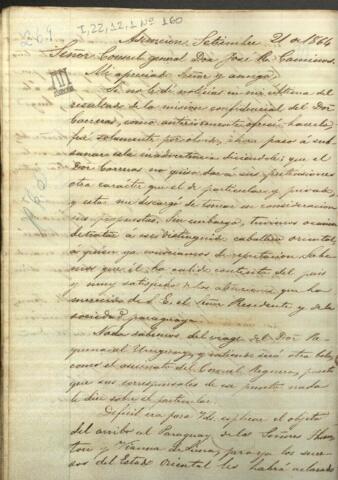 I,22,12,1 Nº 160
Asuncion, Setiembre 21 de 1864
Señor Consul general Don José Ma. Caminos.
Mi apreciado Señor y amigo,
Si no le dí noticias en mi última del
resultado de la mision confidencial del Dor
Carreras, como anteriormente ofrecí hacerlo,
fué solamente por olvido, ahora paso á sub
sanar esta inadvertencia diciendole; que el
Dor Carreras no quiso dar á sus pretensiones
otro caracter que el de particular y privado,
y esto me descargó de tomar en consideracion
sus propuestas. Sin embargo, tuvimos ocasion
de tratar á ese distinguido caballero oriental,
á quien ya conociamos de reputacion. Sabe
mos que él ha salido contento del pais
y muy satisfecho de las atenciones que ha
merecido de S. E. el Señor Presidente y de la
sociedad paraguaya.
Nada sabemos del viage del Dor Re
quena al Uruguay, y
como el asesinato del Consul Regueras, puesto
que sus corresponsales de ese punto nada
le dice sobre el particular.
Dificil era para Vd. esplicar el objeto
del arribo al Paraguay de los Señores
y Vianna de Lima, pero ya los suce
sos del Estado Oriental les habrá aclarado